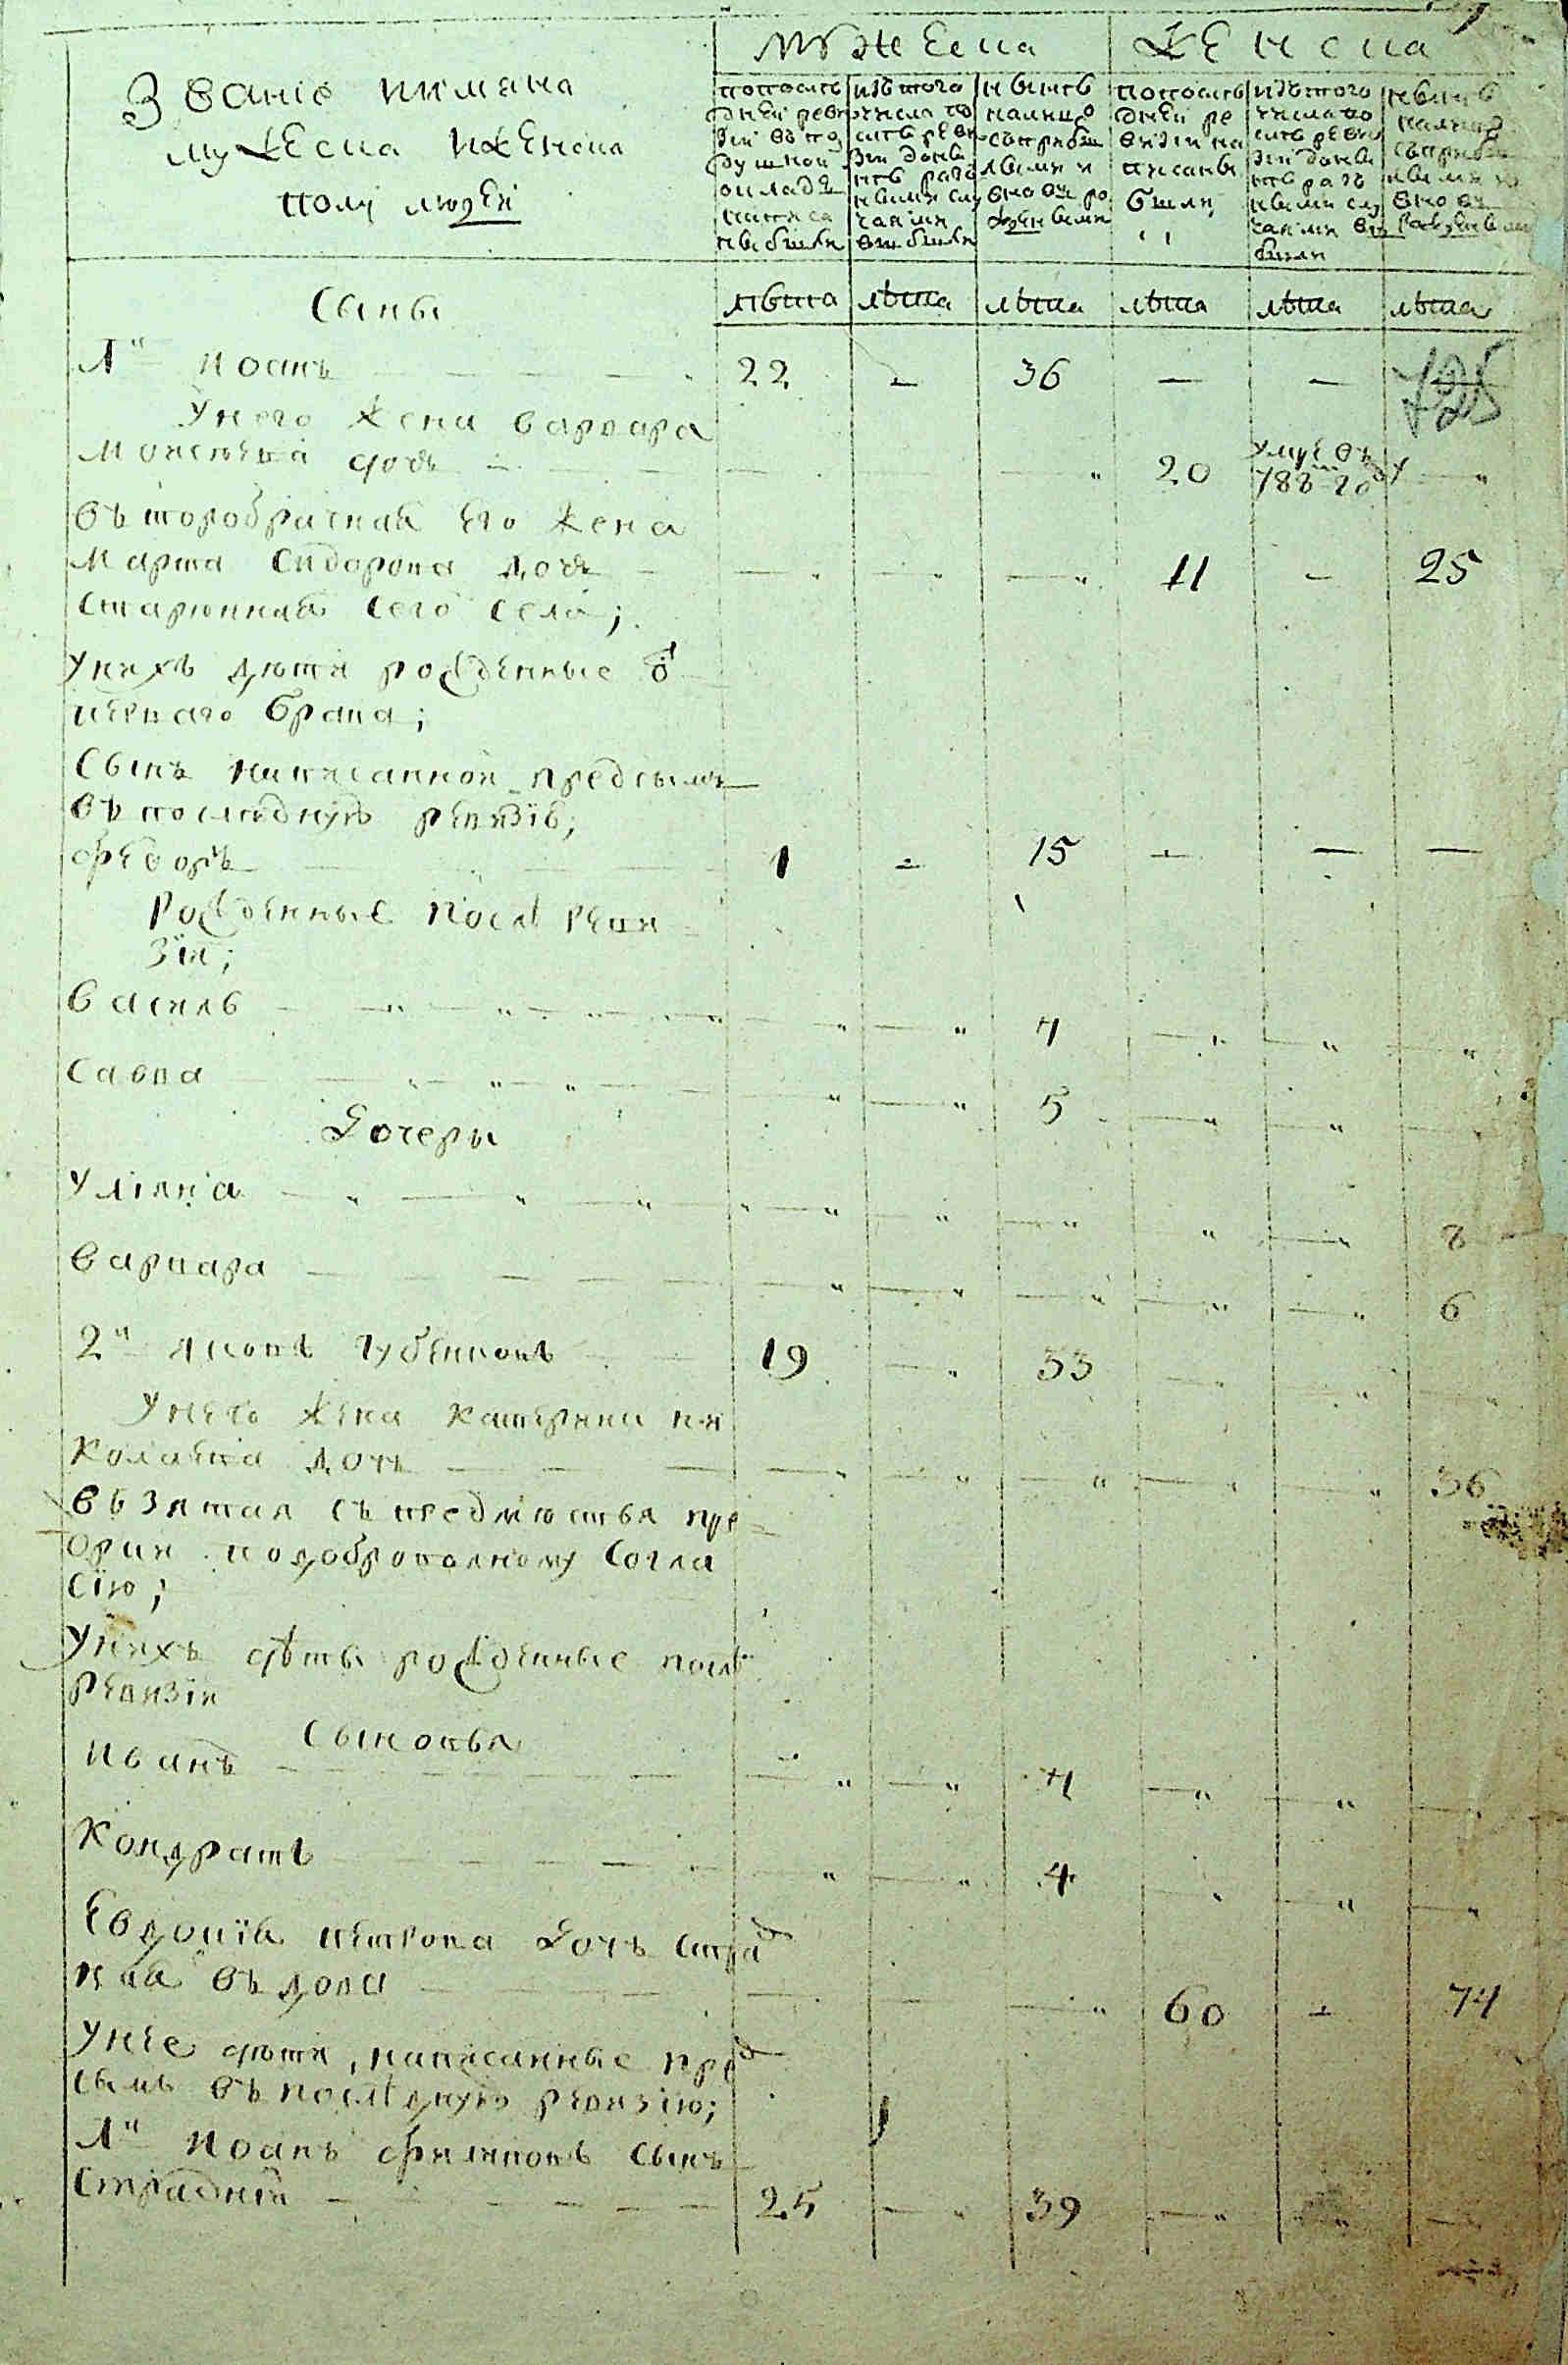 Званіе иимяна
мужеска иженска
полу людеи
мужеска
женска
попослѣ
днеи реви
зіи въ по
душномъ
окладѣ
написа
ны были
изъ того
числа по
слѣ реви
зіи до ны
нѣ разъ
ными слу
чаями
выбыли
нынѣ
налицо
съприбы
лыми и
вновь ро
жденными
попослѣ
днеи ре
визіи на
писаны
были
изъ того
числа по
слѣ реви
зіи до ны
нѣ разъ
ными слу
чаями вы
были
нынѣ
налицо
съприбы
лыми и
вновь
рожденными
Сыны
лѣта лѣта лѣта лѣта лѣта лѣта
1й Иоанъ 22 — 36 — —
Унего жена варвара
Моисеева дочь — — 20 умре въ 788 году —
въторобрачная его жена
Марта Сидорова дочь — — — 11 — 25
Старинная сего села;
Унихъ дети рожденные от
перваго брака;
Сынъ написаннои предсымъ
въ последную ревизію;
Федоръ 1 — 15 — — —
Рожденные послѣ реви
зіи;
Василь — — 7 — — —
Савва — — 5 — — —
Дочеры
Уліяна — — — — — 8
Варвара — — — — — 6
2й Яковъ Губенковъ 19 — 33 — — —
Унего жена Катерина ни
колаева дочь — — — — — 36
възятая съ предместья
по добровольному согла
сію;
Унихъ дѣты рожденные послѣ
Ревизіи
Сыновья
Иванъ — — 7 — — —
Кондратъ — — 4 — — —
Евдокія петрова дочь
въдова — — — 60 — 74
Унее дети, написанные пред
сымъ въ послѣдную ревизію;
1й Иоанъ филиповъ сынъ
Страдній 25 — 39 — — —